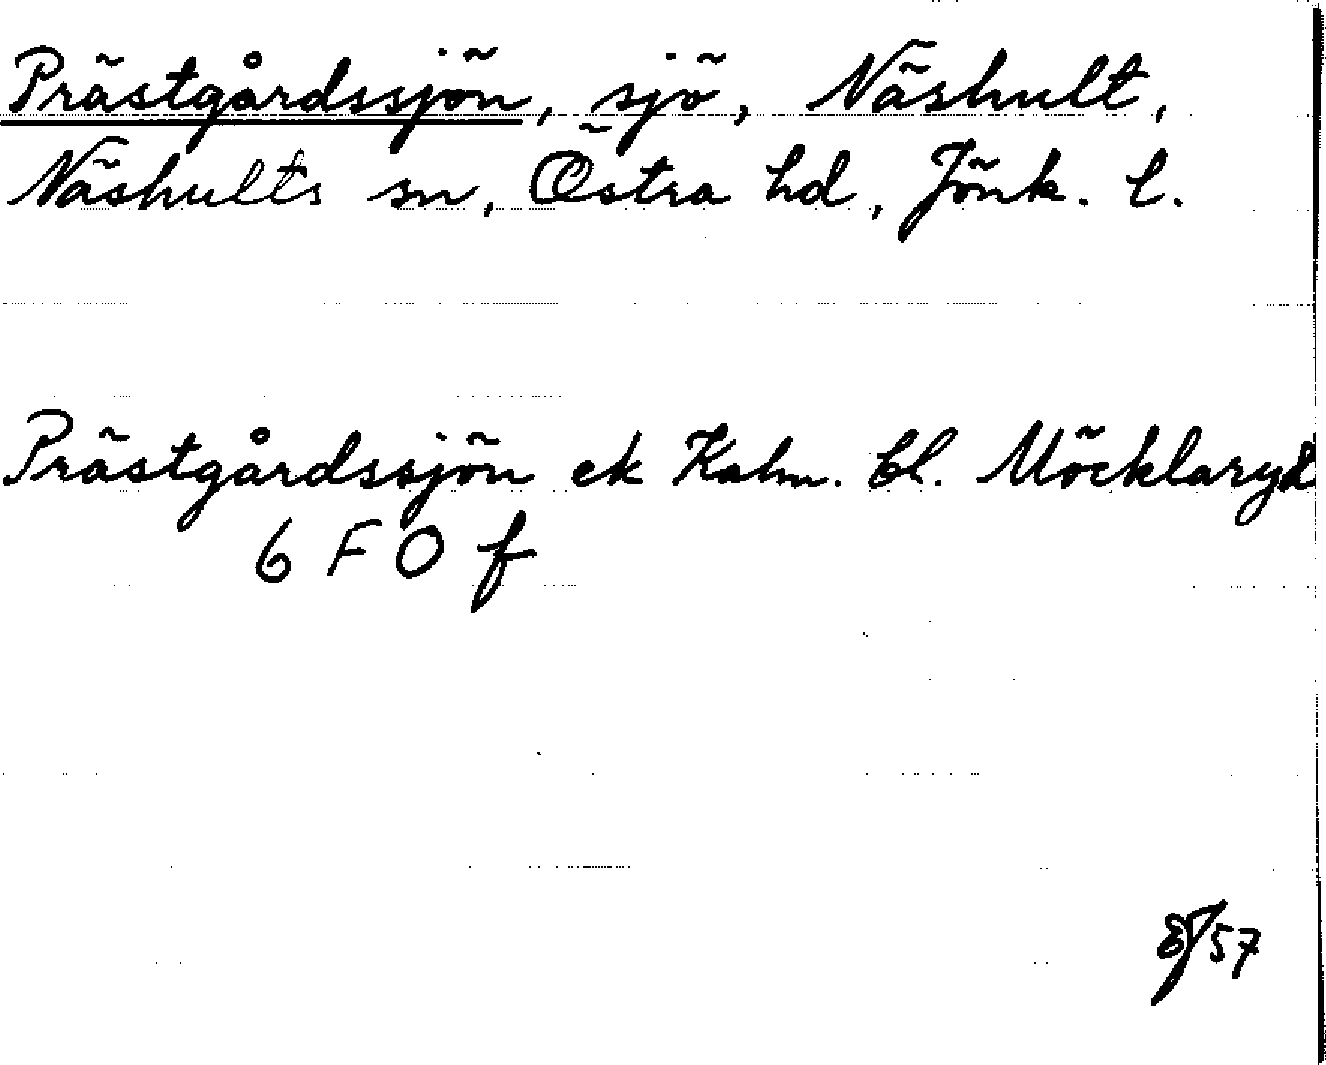 Prästgårdssjön, sjö, Näshult,
Näshults sn, Östra hd, Jönk. l.
Prästgårdssjön ek Kalm. bl. Möcklaryd
6 F 0 f
EJ 57